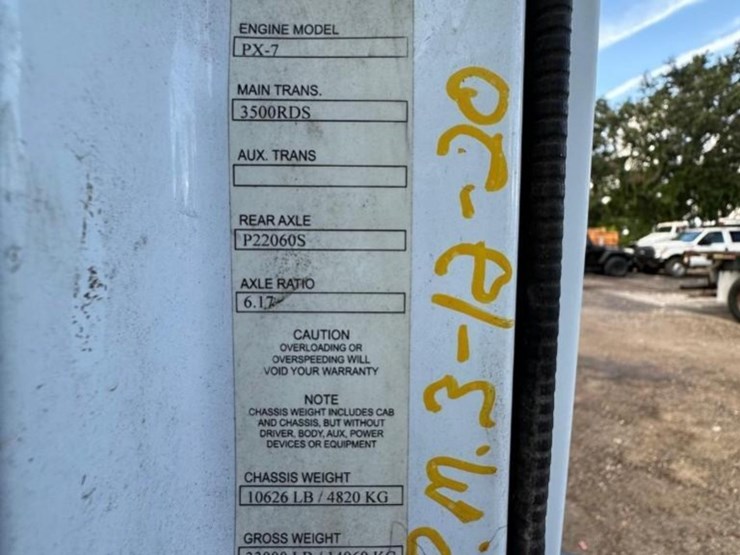 ENGINE MODEL
PX-7
MAIN TRANS.
3500RDS
AUX. TRANS
REAR AXLE
P22060S
AXLE RATIO
6.17
CAUTION
OVERLOADING OR
OVERSPEEDING WILL
VOID YOUR WARRANTY
NOTE
CHASSIS WEIGHT INCLUDES CAB
AND CHASSIS, BUT WITHOUT
DRIVER, BODY, AUX, POWER
DEVICES OR EQUIPMENT
CHASSIS WEIGHT
10626 LB / 4820 KG
GROSS WEIGHT